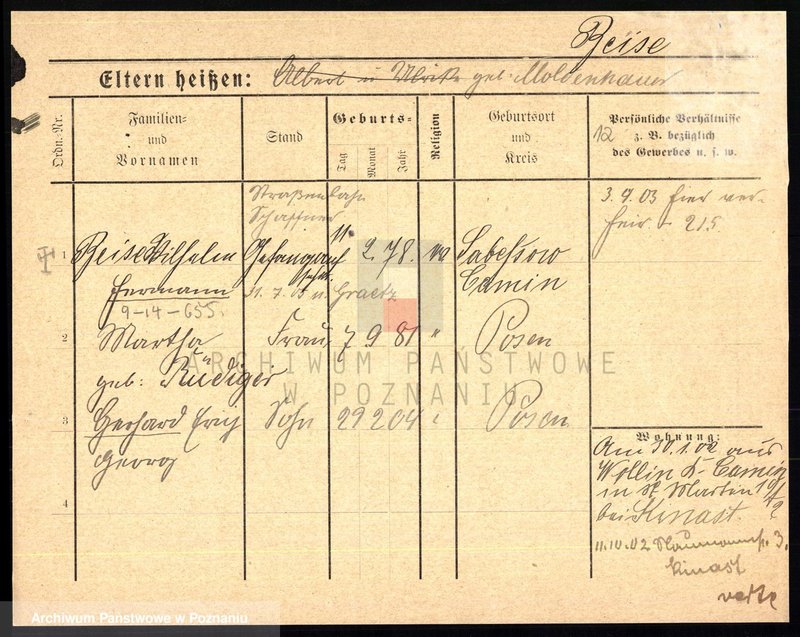 Reise
Eltern heißen: Albert u Ulrike geb. Moldenhauer
Ordn.-Nr.
Familien-
und
Vornamen
Stand
Geburts-
Tag
Monat
Jahr
Religion
Geburtsort
und
Kreis
12
Persönliche Verhältnisse
z. B. bezüglich
des Gewerbes u. s. w.
Straßenbahn
Schaffner
3. 9. 03 hier ver-
heir. 215
1 Reise Wilhelm
Hermann
9-14-655.
Gefangenauf
11 2. 78.
Camin
31. 7. 05 n. Graetz
2 Martha
geb: Rüdiger
Frau 7 9 81 " Posen
3 Gerhard Erich
Georg
Sohn 29 2 04 " Posen
4
Wohnung:
Am 30. 1. 02 aus
Wollin Kr. Camin
in St. Martin
bei Kinast.
11. 10. 02 Naumannstr. 3.
Kinast
verte
ARCHIWUM PAŃSTWOWE
W POZNANIU
Archiwum Państwowe w Poznaniu